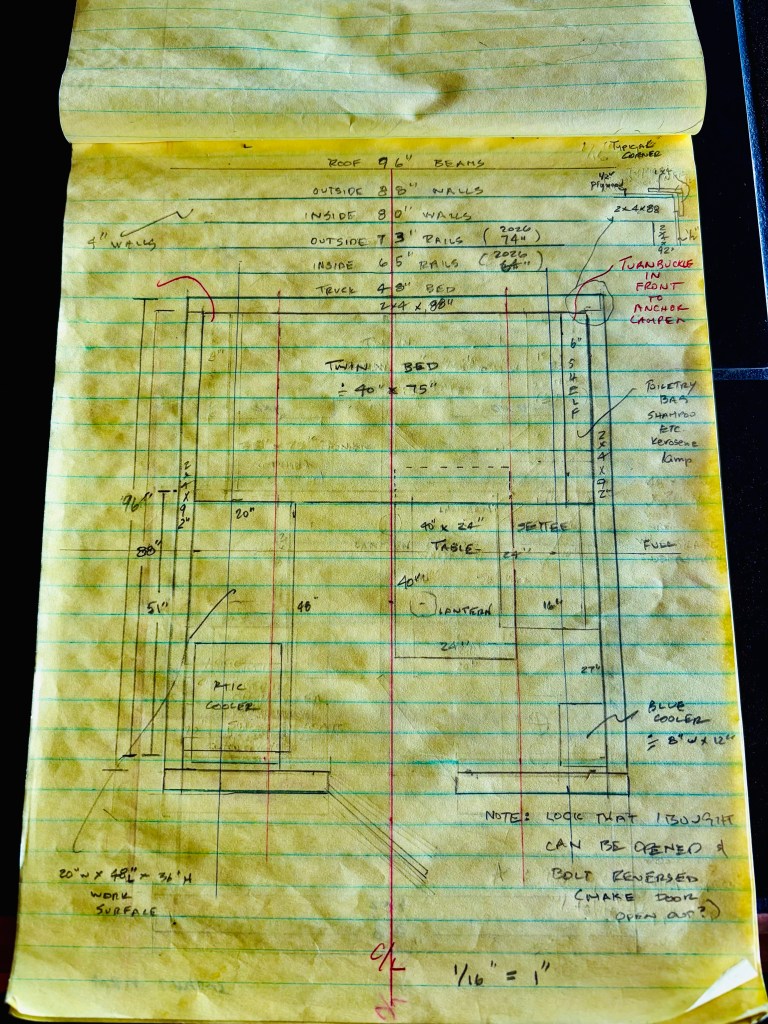 ROOF 96" BEAMS
TYPICAL
CORNER
OUTSIDE 88" WALLS
1/2"
Plywood
INSIDE 80" WALLS
2x4x88
4" WALLS
OUTSIDE 73" RAILS (2026 74")
2x4
92"
INSIDE 65" RAILS (2026
TRUCK 48" BED
2x4 x 88"
TURNBUCKLE
IN
FRONT
TO
ANCHOR
CAMPER
TWIN BED
≐ 40" x 75"
6" SHELF
TOILETRY
BAG
SHAMPOO
ETC
Kerosene
lamp
2x4x92"
2x4x92"
96"
88"
51"
20"
40" x 24"
TABLE
SETTEE
24"
FUEL
40"
48"
LANTERN
16"
24"
27"
RTIC
COOLER
BLUE
COOLER
≐ 8" W x 12"
NOTE: LOCK THAT I BOUGHT
CAN BE OPENED &
BOLT REVERSED
(MAKE DOOR
OPEN OUT?)
20" W x 48 L x 36" H
WORK
SURFACE
C/L
1/16" = 1"